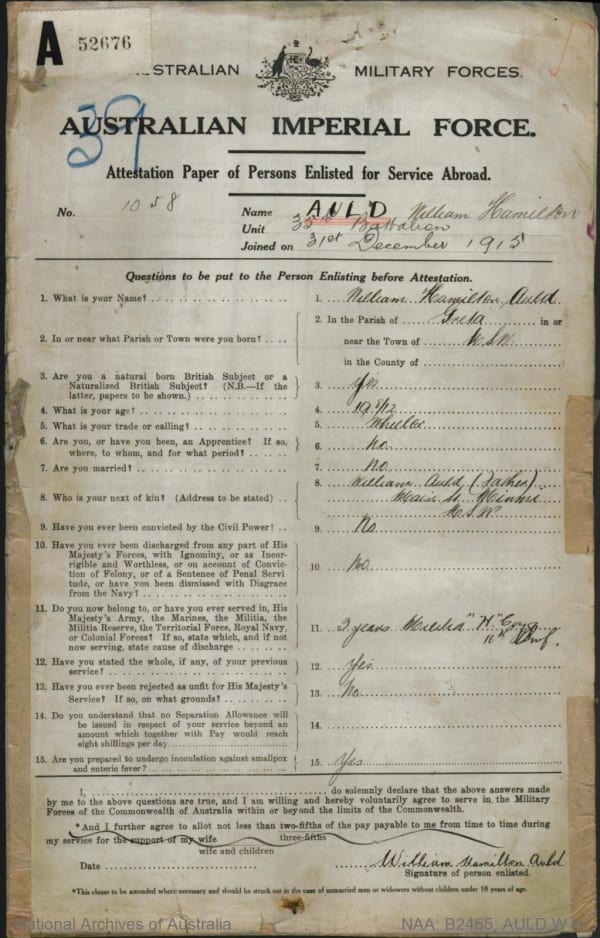 A 52676
AUSTRALIAN MILITARY FORCES.
39
AUSTRALIAN IMPERIAL FORCE.
Attestation Paper of Persons Enlisted for Service Abroad.
No. 1058 Name AULD William Hamilton
Unit 35th Battalion
Joined on 31st December 1915
Questions to be put to the Person Enlisting before Attestation.
1. What is your Name? 1. William Hamilton Auld
2. In or near what Parish or Town were you born? 2. In the Parish of Greta in or
near the Town of N.S.W.
in the County of
3. Are you a natural born British Subject or a
Naturalized British Subject? (N.B.—If the
latter, papers to be shown.) 3. Yes
4. What is your age? 4. 19 5/12
5. What is your trade or calling? 5. Wheeler
6. Are you, or have you been, an Apprentice? If so,
where, to whom, and for what period? 6. No
7. Are you married? 7. No
8. Who is your next of kin? (Address to be stated) 8. William Auld (Father)
Main St. Minmi
N.S.W.
9. Have you ever been convicted by the Civil Power? 9. No
10. Have you ever been discharged from any part of His
Majesty's Forces, with Ignominy, or as Incor-
rigible and Worthless, or on account of Convic-
tion of Felony, or of a Sentence of Penal Servi
tude, or have you been dismissed with Disgrace
from the Navy? 10. No
11. Do you now belong to, or have you ever served in, His
Majesty's Army, the Marines, the Militia, the
Militia Reserve, the Territorial Force, Royal Navy,
or Colonial Forces? If so, state which, and if not
now serving, state cause of discharge 11. 3 years Militia "H" Coy
16th Inf.
12. Have you stated the whole, if any, of your previous
service? 12. Yes
13. Have you ever been rejected as unfit for His Majesty's
Service? If so, on what grounds? 13. No
14. Do you understand that no Separation Allowance will
be issued in respect of your service beyond an
amount which together with Pay would reach
eight shillings per day 14.
15. Are you prepared to undergo inoculation against smallpox
and enteric fever? 15. Yes
I, do solemnly declare that the above answers made
by me to the above questions are true, and I am willing and hereby voluntarily agree to serve in the Military
Forces of the Commonwealth of Australia within or beyond the limits of the Commonwealth.
*And I further agree to allot not less than two-fifths of the pay payable to me from time to time during
three-fifths
my service for the support of my wife
wife and children
Date William Hamilton Auld
Signature of person enlisted.
*This clause to be amended where necessary and should be struck out in the case of unmarried men or widowers without children under 18 years of age.
National Archives of Australia NAA: B2455, AULD W H